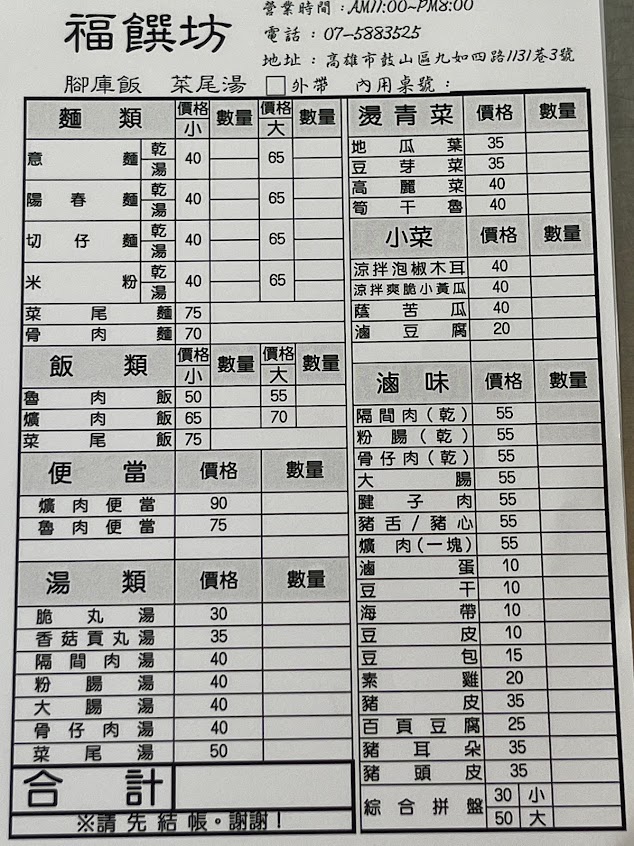 福饌坊
營業時間：AM11:00~PM8:00
電話：07-5883525
地址：高雄市鼓山區九如四路1131巷3號
腳庫飯 菜尾湯 □外帶 內用桌號：
麵類 價格 小 數量 價格 大 數量
意麵 乾 湯 40 65
陽春麵 乾 湯 40 65
切仔麵 乾 湯 40 65
米粉 乾 湯 40 65
菜尾麵 75
骨肉麵 70
飯類 價格 小 數量 價格 大 數量
魯肉飯 50 55
爌肉飯 65 70
菜尾飯 75
便當 價格 數量
爌肉便當 90
魯肉便當 75
湯類 價格 數量
脆丸湯 30
香菇貢丸湯 35
隔間肉湯 40
粉腸湯 40
大腸湯 40
骨仔肉湯 40
菜尾湯 50
合計
※請先結帳。謝謝！
燙青菜 價格 數量
地瓜葉 35
豆芽菜 35
高麗菜 40
筍干魯 40
小菜 價格 數量
涼拌泡椒木耳 40
涼拌爽脆小黃瓜 40
蔭苦瓜 40
滷豆腐 20
滷味 價格 數量
隔間肉(乾) 55
粉腸(乾) 55
骨仔肉(乾) 55
大腸 55
腱子肉 55
豬舌/豬心 55
爌肉(一塊) 55
滷蛋 10
豆干 10
海帶 10
豆皮 10
豆包 15
素雞 20
豬皮 35
百頁豆腐 25
豬耳朵 35
豬頭皮 35
綜合拼盤 30 小
50 大